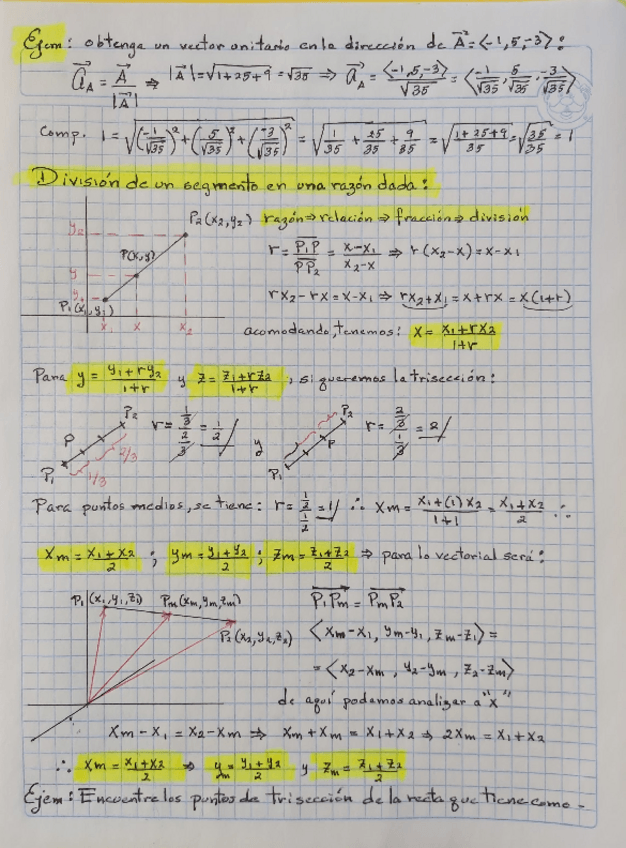 Ejem: obtenga un vector unitario en la dirección de A⃗ = <-1, 5, -3>:
a⃗_A = A⃗/|A⃗| ⇒ |A⃗| = √(1+25+9) = √35 ⇒ a⃗_A = <-1,5,-3>/√35 = <-1/√35, 5/√35, -3/√35>
Comp. 1 = √((-1/√35)² + (5/√35)² + (-3/√35)²) = √(1/35 + 25/35 + 9/35) = √((1+25+9)/35) = √(35/35) = 1
División de un segmento en una razón dada:
P₂(x₂,y₂) razón ⇒ relación ⇒ fracción ⇒ división
y₂
P(x,y)
y
y₁
P₁(x₁,y₁)
x₁ x x₂
r = P₁P/PP₂ = (x-x₁)/(x₂-x) ⇒ r(x₂-x) = x-x₁
rx₂-rx = x-x₁ ⇒ rx₂+x₁ = x+rx = x(1+r)
acomodando, tenemos: x = (x₁+rx₂)/(1+r)
Para y = (y₁+ry₂)/(1+r) y z = (z₁+rz₂)/(1+r), si queremos la trisección:
P₁ P P₂ 1/3 2/3 r = (1/3)/(2/3) = 1/2 y P₁ P P₂ r = (2/3)/(1/3) = 2
Para puntos medios, se tiene: r = (1/2)/(1/2) = 1 ∴ Xm = (x₁+(1)x₂)/(1+1) = (x₁+x₂)/2 ∴
Xm = (x₁+x₂)/2 ; ym = (y₁+y₂)/2 ; zm = (z₁+z₂)/2 ⇒ para lo vectorial será:
P₁(x₁,y₁,z₁) Pm(xm,ym,zm)
P₂(x₂,y₂,z₂)
P₁Pm = PmP₂
<xm-x₁, ym-y₁, zm-z₁> =
= <x₂-xm, y₂-ym, z₂-zm>
de aquí podemos analizar a "x"
Xm-x₁ = x₂-xm ⇒ xm+xm = x₁+x₂ ⇒ 2xm = x₁+x₂
∴ xm = (x₁+x₂)/2 ⇒ ym = (y₁+y₂)/2 y zm = (z₁+z₂)/2
Ejem: Encuentre los puntos de trisección de la recta que tiene como-